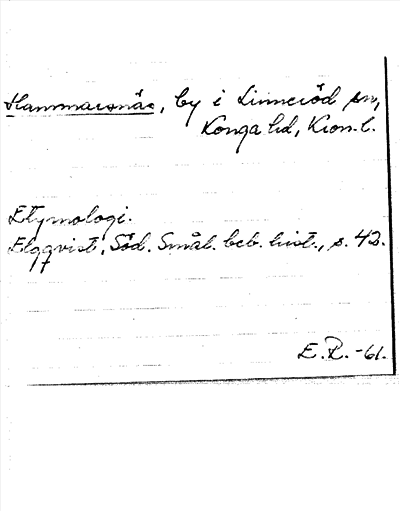 Hammarsnäs, by i Linneröd sn,
Konga hd, Kron. l.
Etymologi.
Elgqvist, Söd. Smål. beb. hist., s. 42.
E. R. -61.